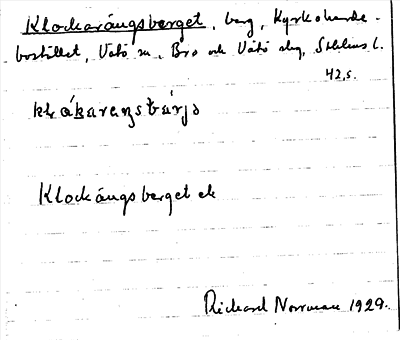 Klockarängsberget, berg, Kyrkoherde-
bostället, Vätö sn, Bro och Vätö skg, Sthlms l.
42,s.
Klockängsberget ek
Rickard Norrman 1929.